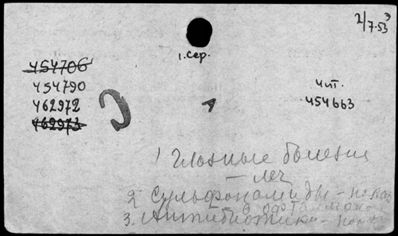 2/7.53
1.сер.
454706
454790
462972
462973
Чит.
454663
1 Глазные болезни
- леч
2. Сульфонамиды -
3. Антибиотики -